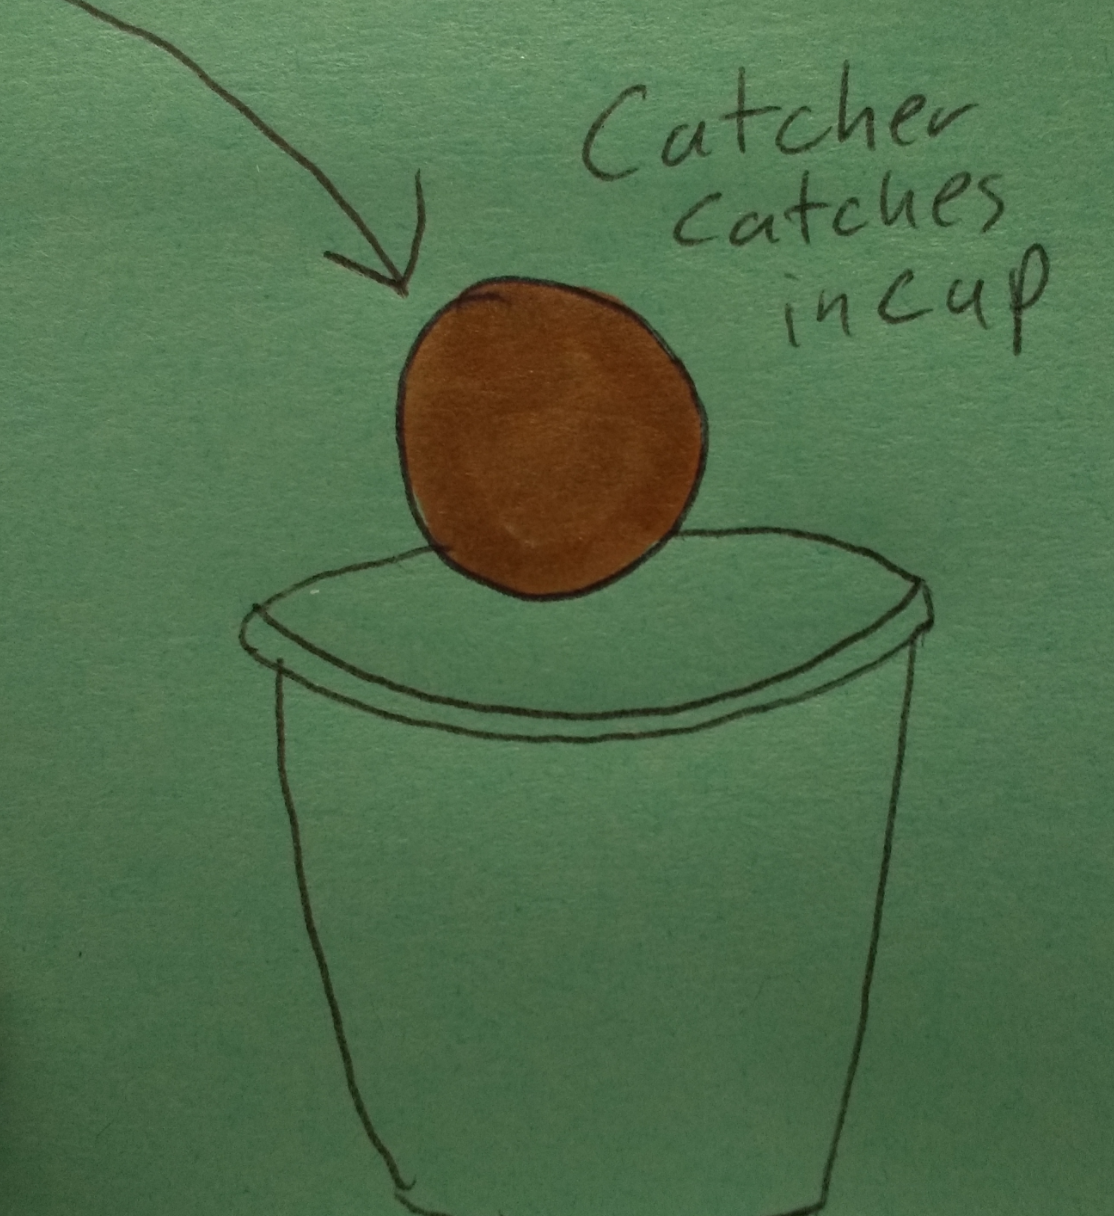 Catcher
catches
in cup